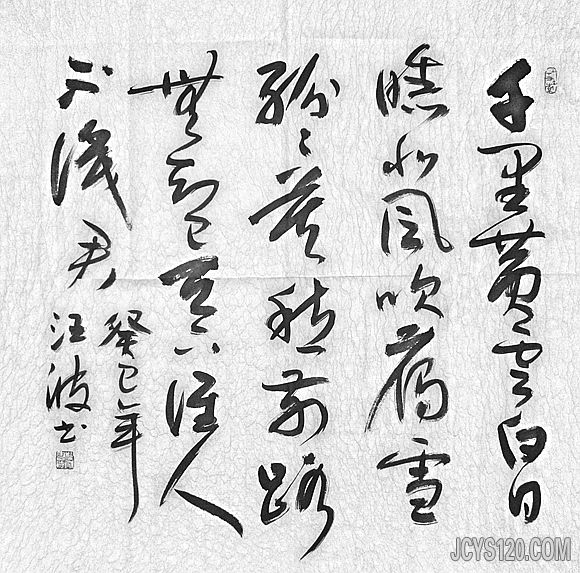 千里黄云白日
曛北风吹雁雪
纷纷莫愁前路
無知己天下谁人
不識君
癸巳年
汪波书
JCYS120.COM